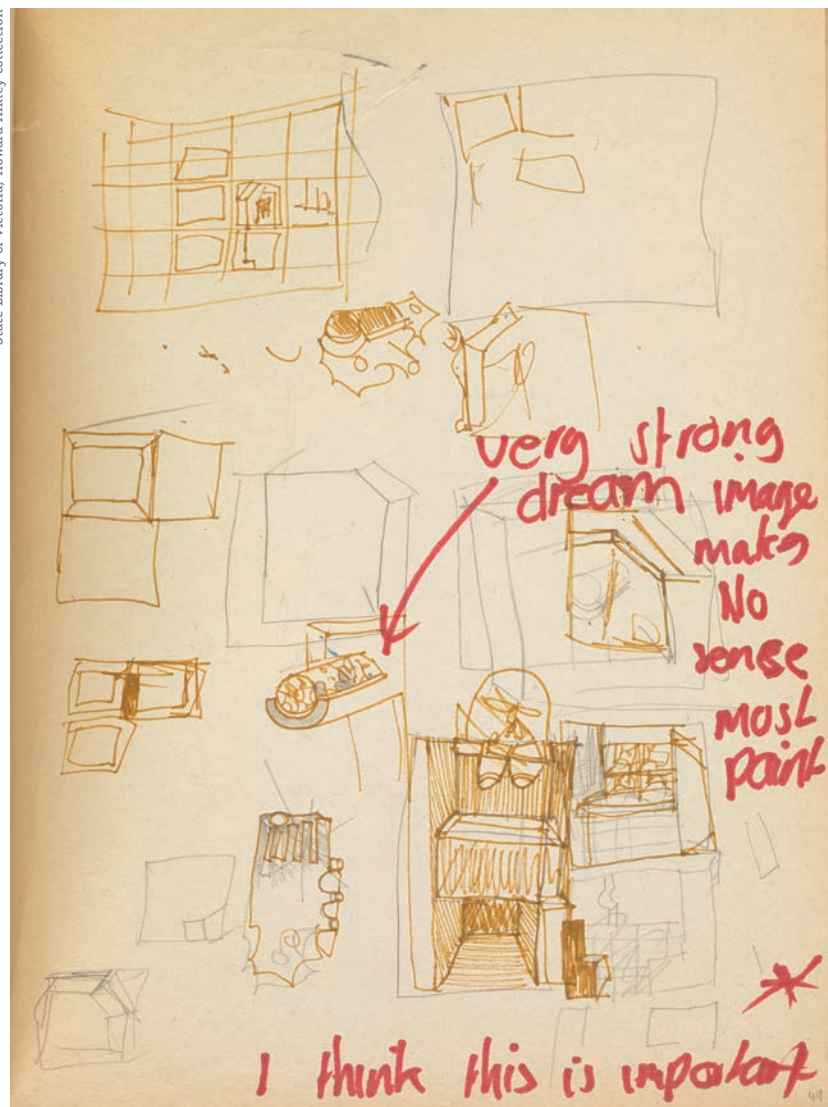 State Library of Victoria, Howard Arkley collection
very strong
dream image
makes
No
sense
most
paint
I think this is important
49